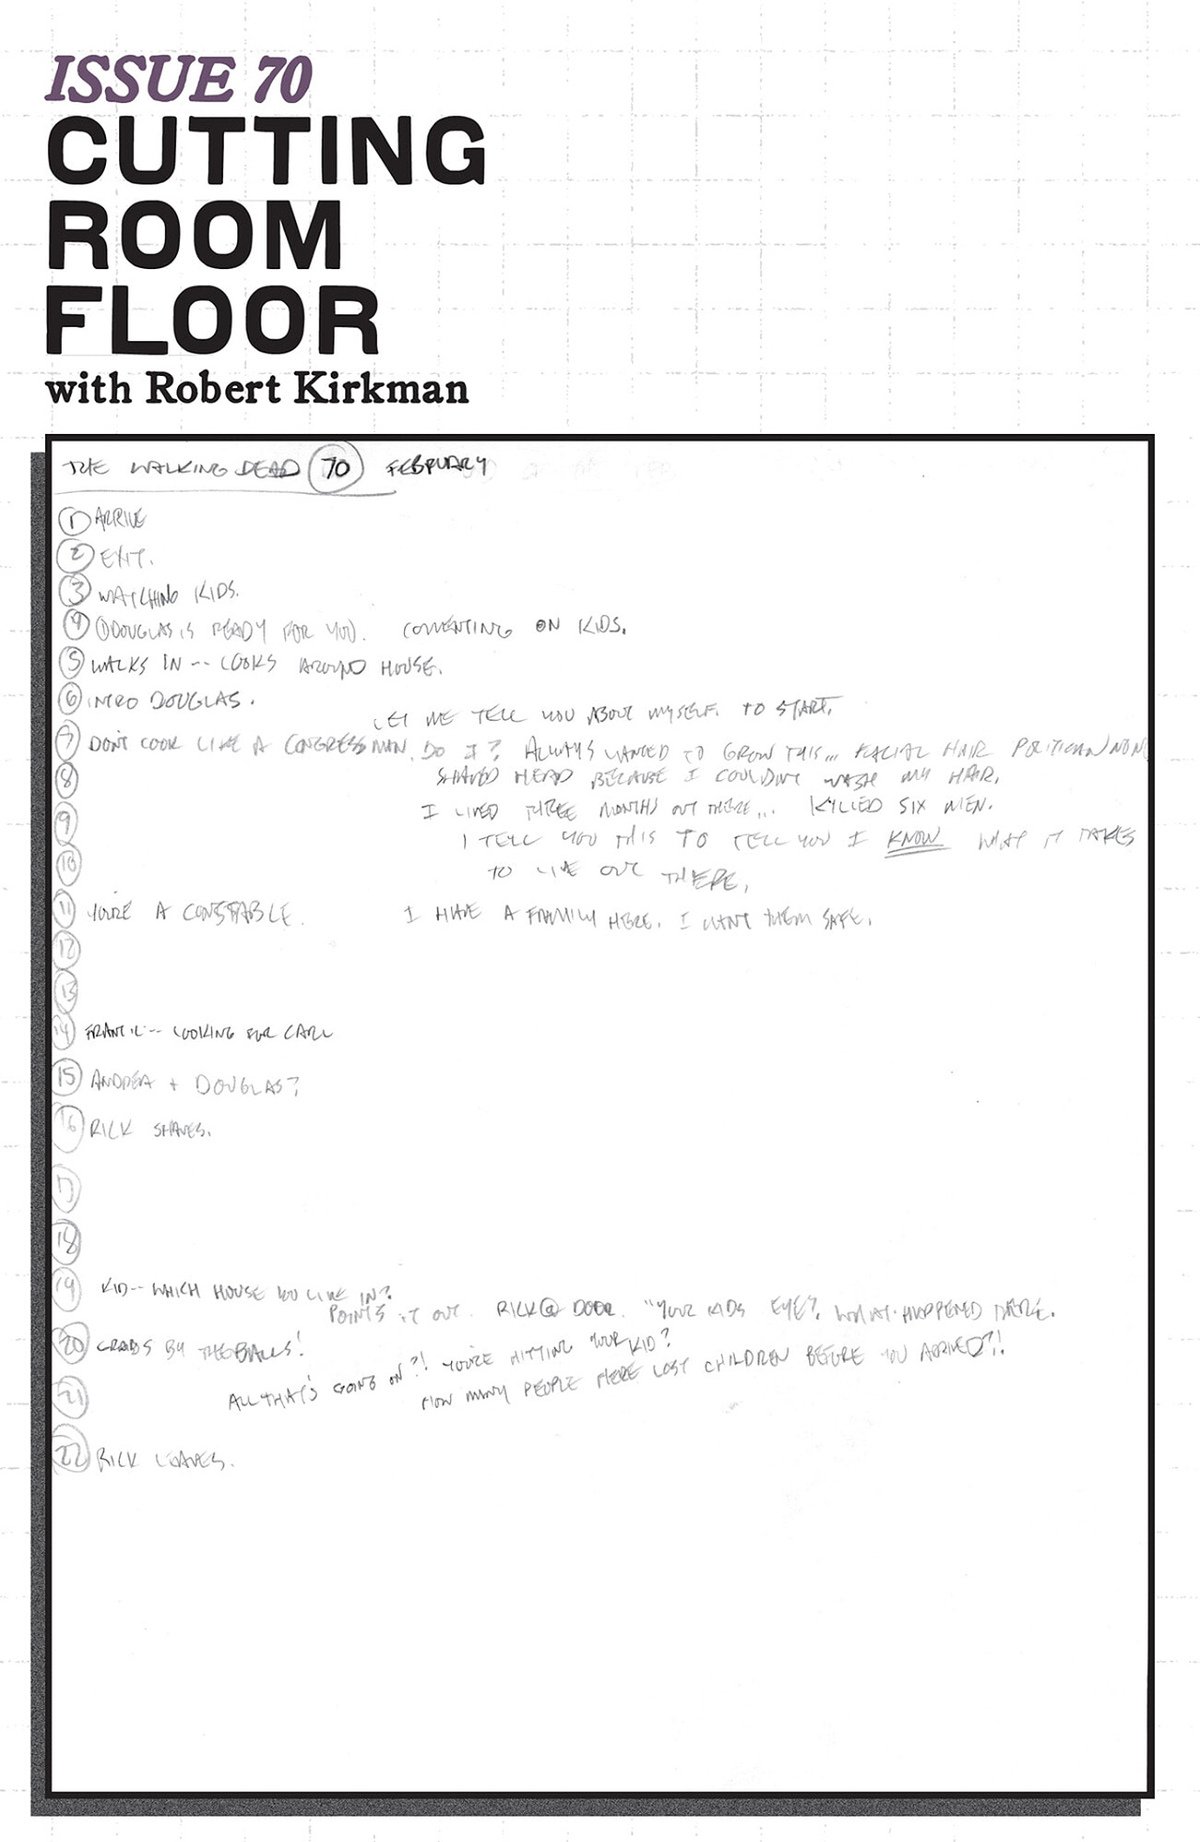 ISSUE 70
CUTTING
ROOM
FLOOR
with Robert Kirkman
THE WALKING DEAD 70 FEBRUARY
1 ARRIVE
2 EXIT.
3 WATCHING KIDS.
4 DOUGLAS IS READY FOR YOU. COMMENTING ON KIDS.
5 WALKS IN -- LOOKS AROUND HOUSE.
6 INTRO DOUGLAS.
LET ME TELL YOU ABOUT MYSELF. TO START.
7 DON'T LOOK LIKE A CONGRESSMAN, DO I? ALWAYS WANTED TO GROW THIS... FACIAL HAIR POLITICIAN
8 SHAVED HEAD BECAUSE I COULDN'T WASH MY HAIR.
9 I LIVED THREE MONTHS OUT THERE... KILLED SIX MEN.
I TELL YOU THIS TO TELL YOU I KNOW WHAT IT TAKES
10 TO LIVE OUT THERE.
11 YOU'RE A CONSTABLE. I HAVE A FAMILY HERE. I WANT THEM SAFE.
12
13
14 FRANTIC -- LOOKING FOR CARL
15 ANDREA + DOUGLAS?
16 RICK SHAVES.
17
18
19 KID -- WHICH HOUSE YOU LIVE IN?
POINTS IT OUT. RICK @ DOOR. "YOUR KIDS EYE?, WHAT HAPPENED THERE.
20 GRABS BY THE BALLS!
ALL THAT'S GOING ON?! YOU'RE HITTING YOUR KID?
21 HOW MANY PEOPLE HERE LOST CHILDREN BEFORE YOU ARRIVED?!
22 RICK LEAVES.